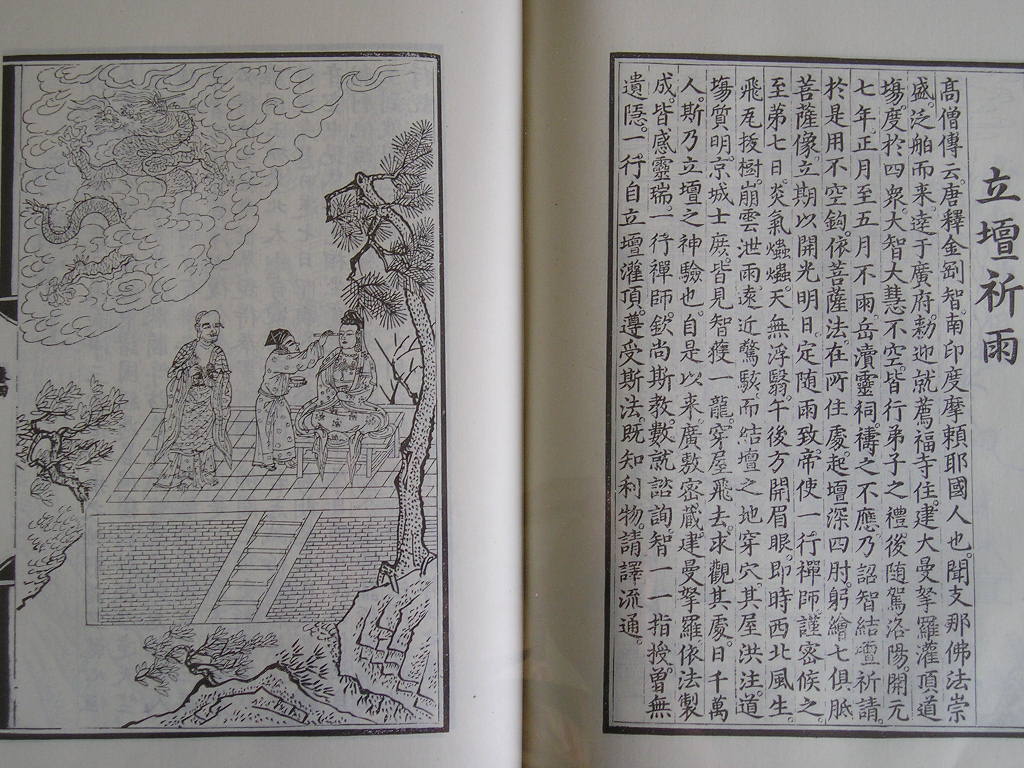 立壇祈雨
高僧傳云。唐釋金剛智。南印度摩賴耶國人也。聞支那佛法崇
盛。泛舶而來逹于廣府。勑迎就薦福寺住。建大曼拏羅灌頂道
場。度於四衆。大智大慧不空。皆行弟子之禮後随駕洛陽。開元
七年。正月至五月不雨。岳瀆靈祠。禱之不應。乃詔智結壇祈請。
於是用不空鈎。依菩薩法。在所住處。起壇深四肘。躬繪七俱胝
菩薩像。立期以開光明日。定随雨致。帝使一行禪師謹密候之。
至弟七日。炎氣爞爞。天無浮翳。午後方開眉眼。即時西北風生。
飛瓦拔樹。崩雲泄雨。遠近驚駭。而結壇之地。穿穴其屋。洪注道
場。質明。京城士庶。皆見智獲一龍。穿屋飛去。求觀其處。日千萬
人。斯乃立壇之神驗也。自是以來。廣敷密藏。建曼拏羅依法製
成。皆感靈瑞。一行禪師。欽尚斯教。數就諮詢。智一一指授。曾無
遺隱。一行自立壇灌頂。遵受斯法。旣知利物。請譯流通。